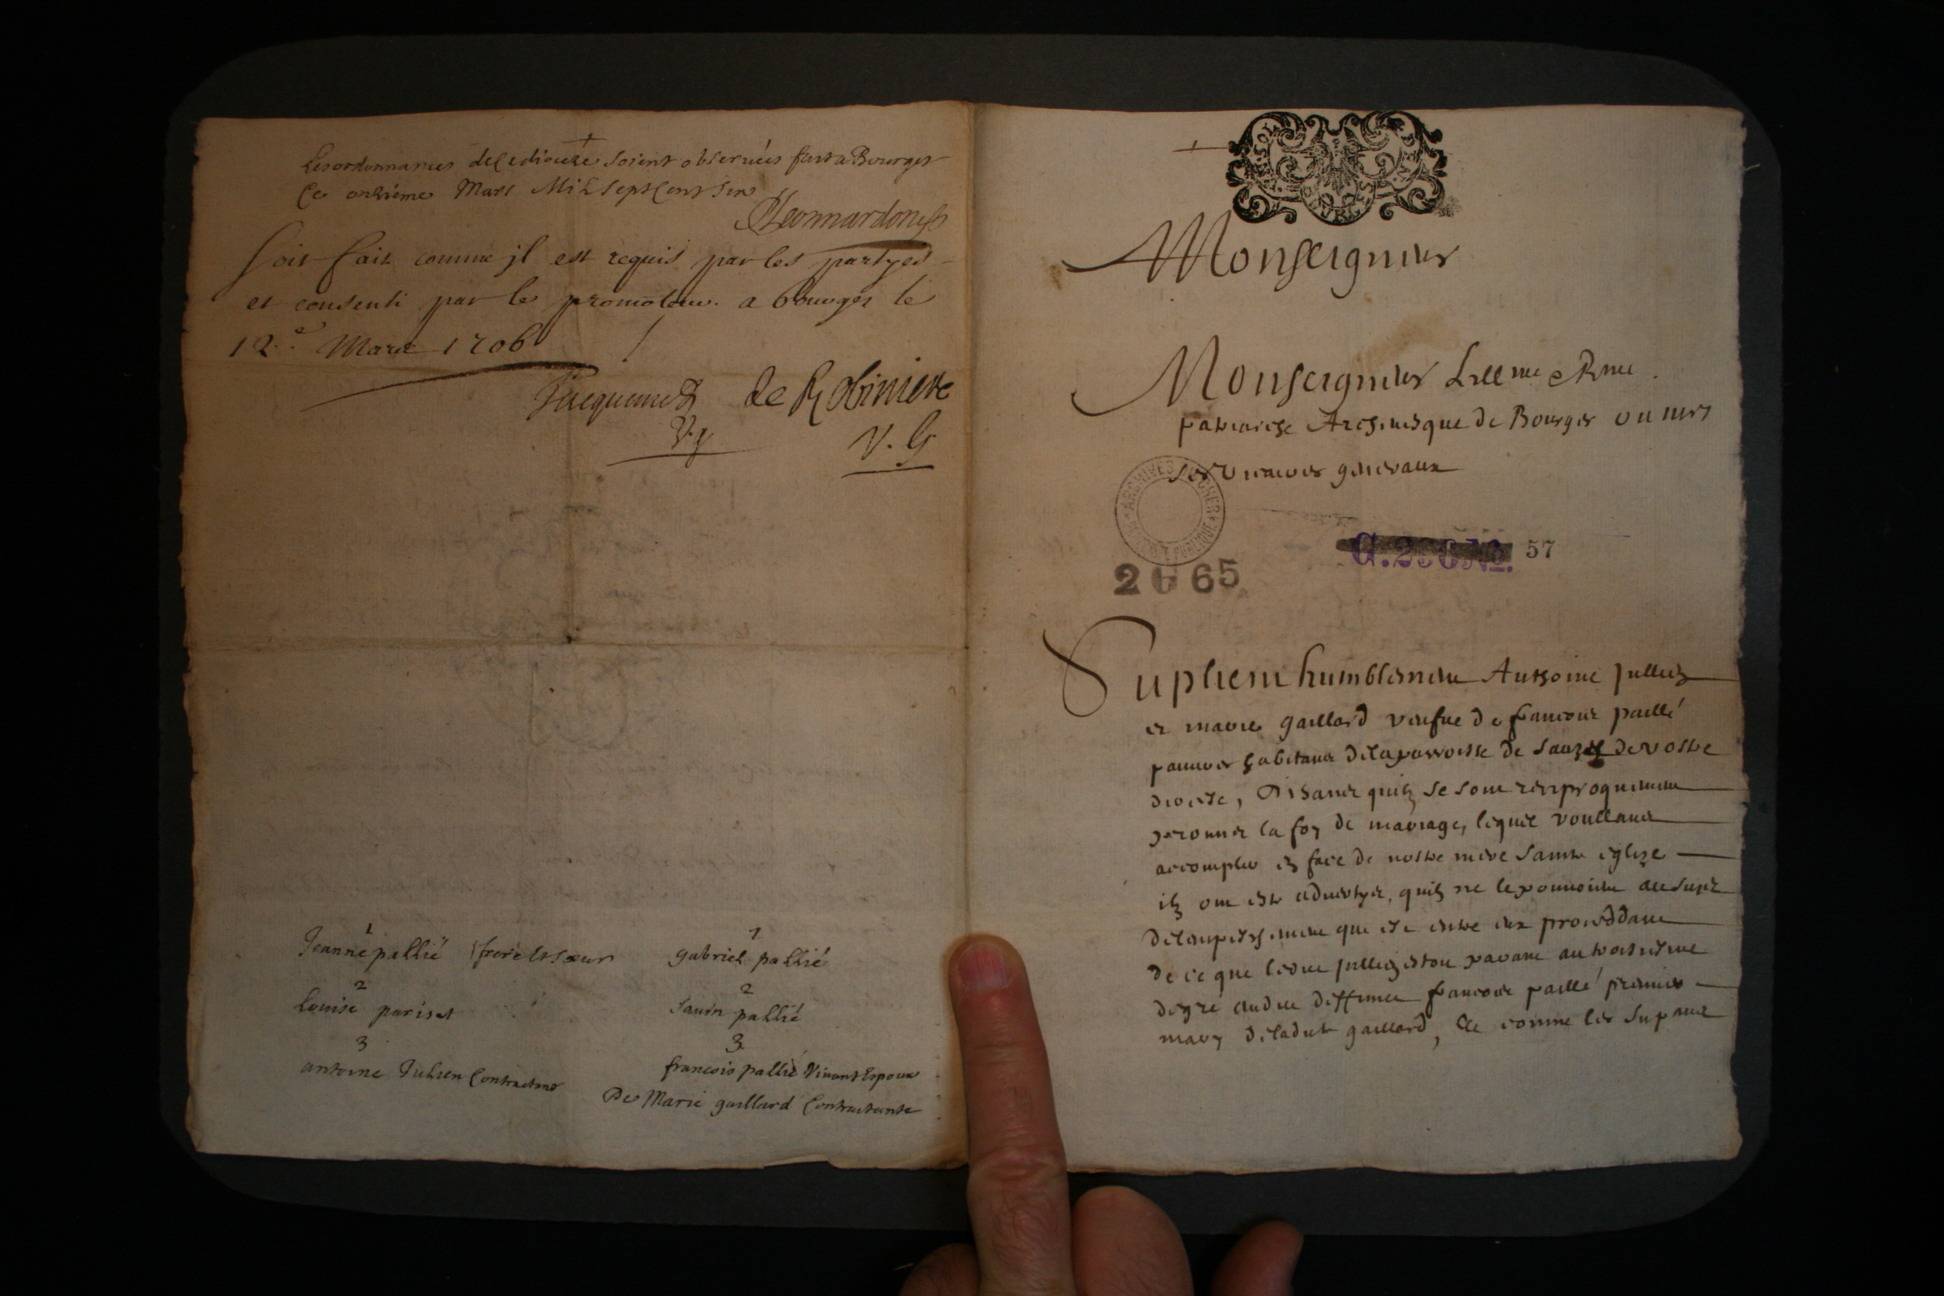 Les ordonnances de ce dioceze soient observées fait a Bourges
Ce onzième Mars Mil sept Cent six
soit fait comme jl est requis par les partyes
et consenti par le promoteur. a bourges le
12.e Mars 1706
de Robiniere
V.g
V. G
1
Jeanne pallié frere et sœur
2
Louise pariset
3
antoine Julien Contractant
1
gabriel pallié
2
saurin pallié
3
francois pallié Vivant Espoux
De Marie gaillard Contractante
Monseigneur
Monseigneur Lillme et Rme
patriarche Archevesque de Bourges ou mrs
ses Vicaires generaux
ARCHIVES DU CHER
2 G 65
57
Suplient humblement Anthoine Jullien
et marie gaillard veufve de francois paillé
pauvres habitans de la parroisse de de vostre
diocese, Disant quilz se sont reciproquement
donner la foy de mariage, lequel voullant
accomplir en face de nostre mere sainte eglize
ilz ont este advertyr, quilz ne le pouvoient au suject
de lempeschement que est entre eux proceddant
de ce que ledit Jullien estoit parant au troisiesme
degré audit deffunct francois paillé premier
mary de ladite gaillard, Et comme les supants